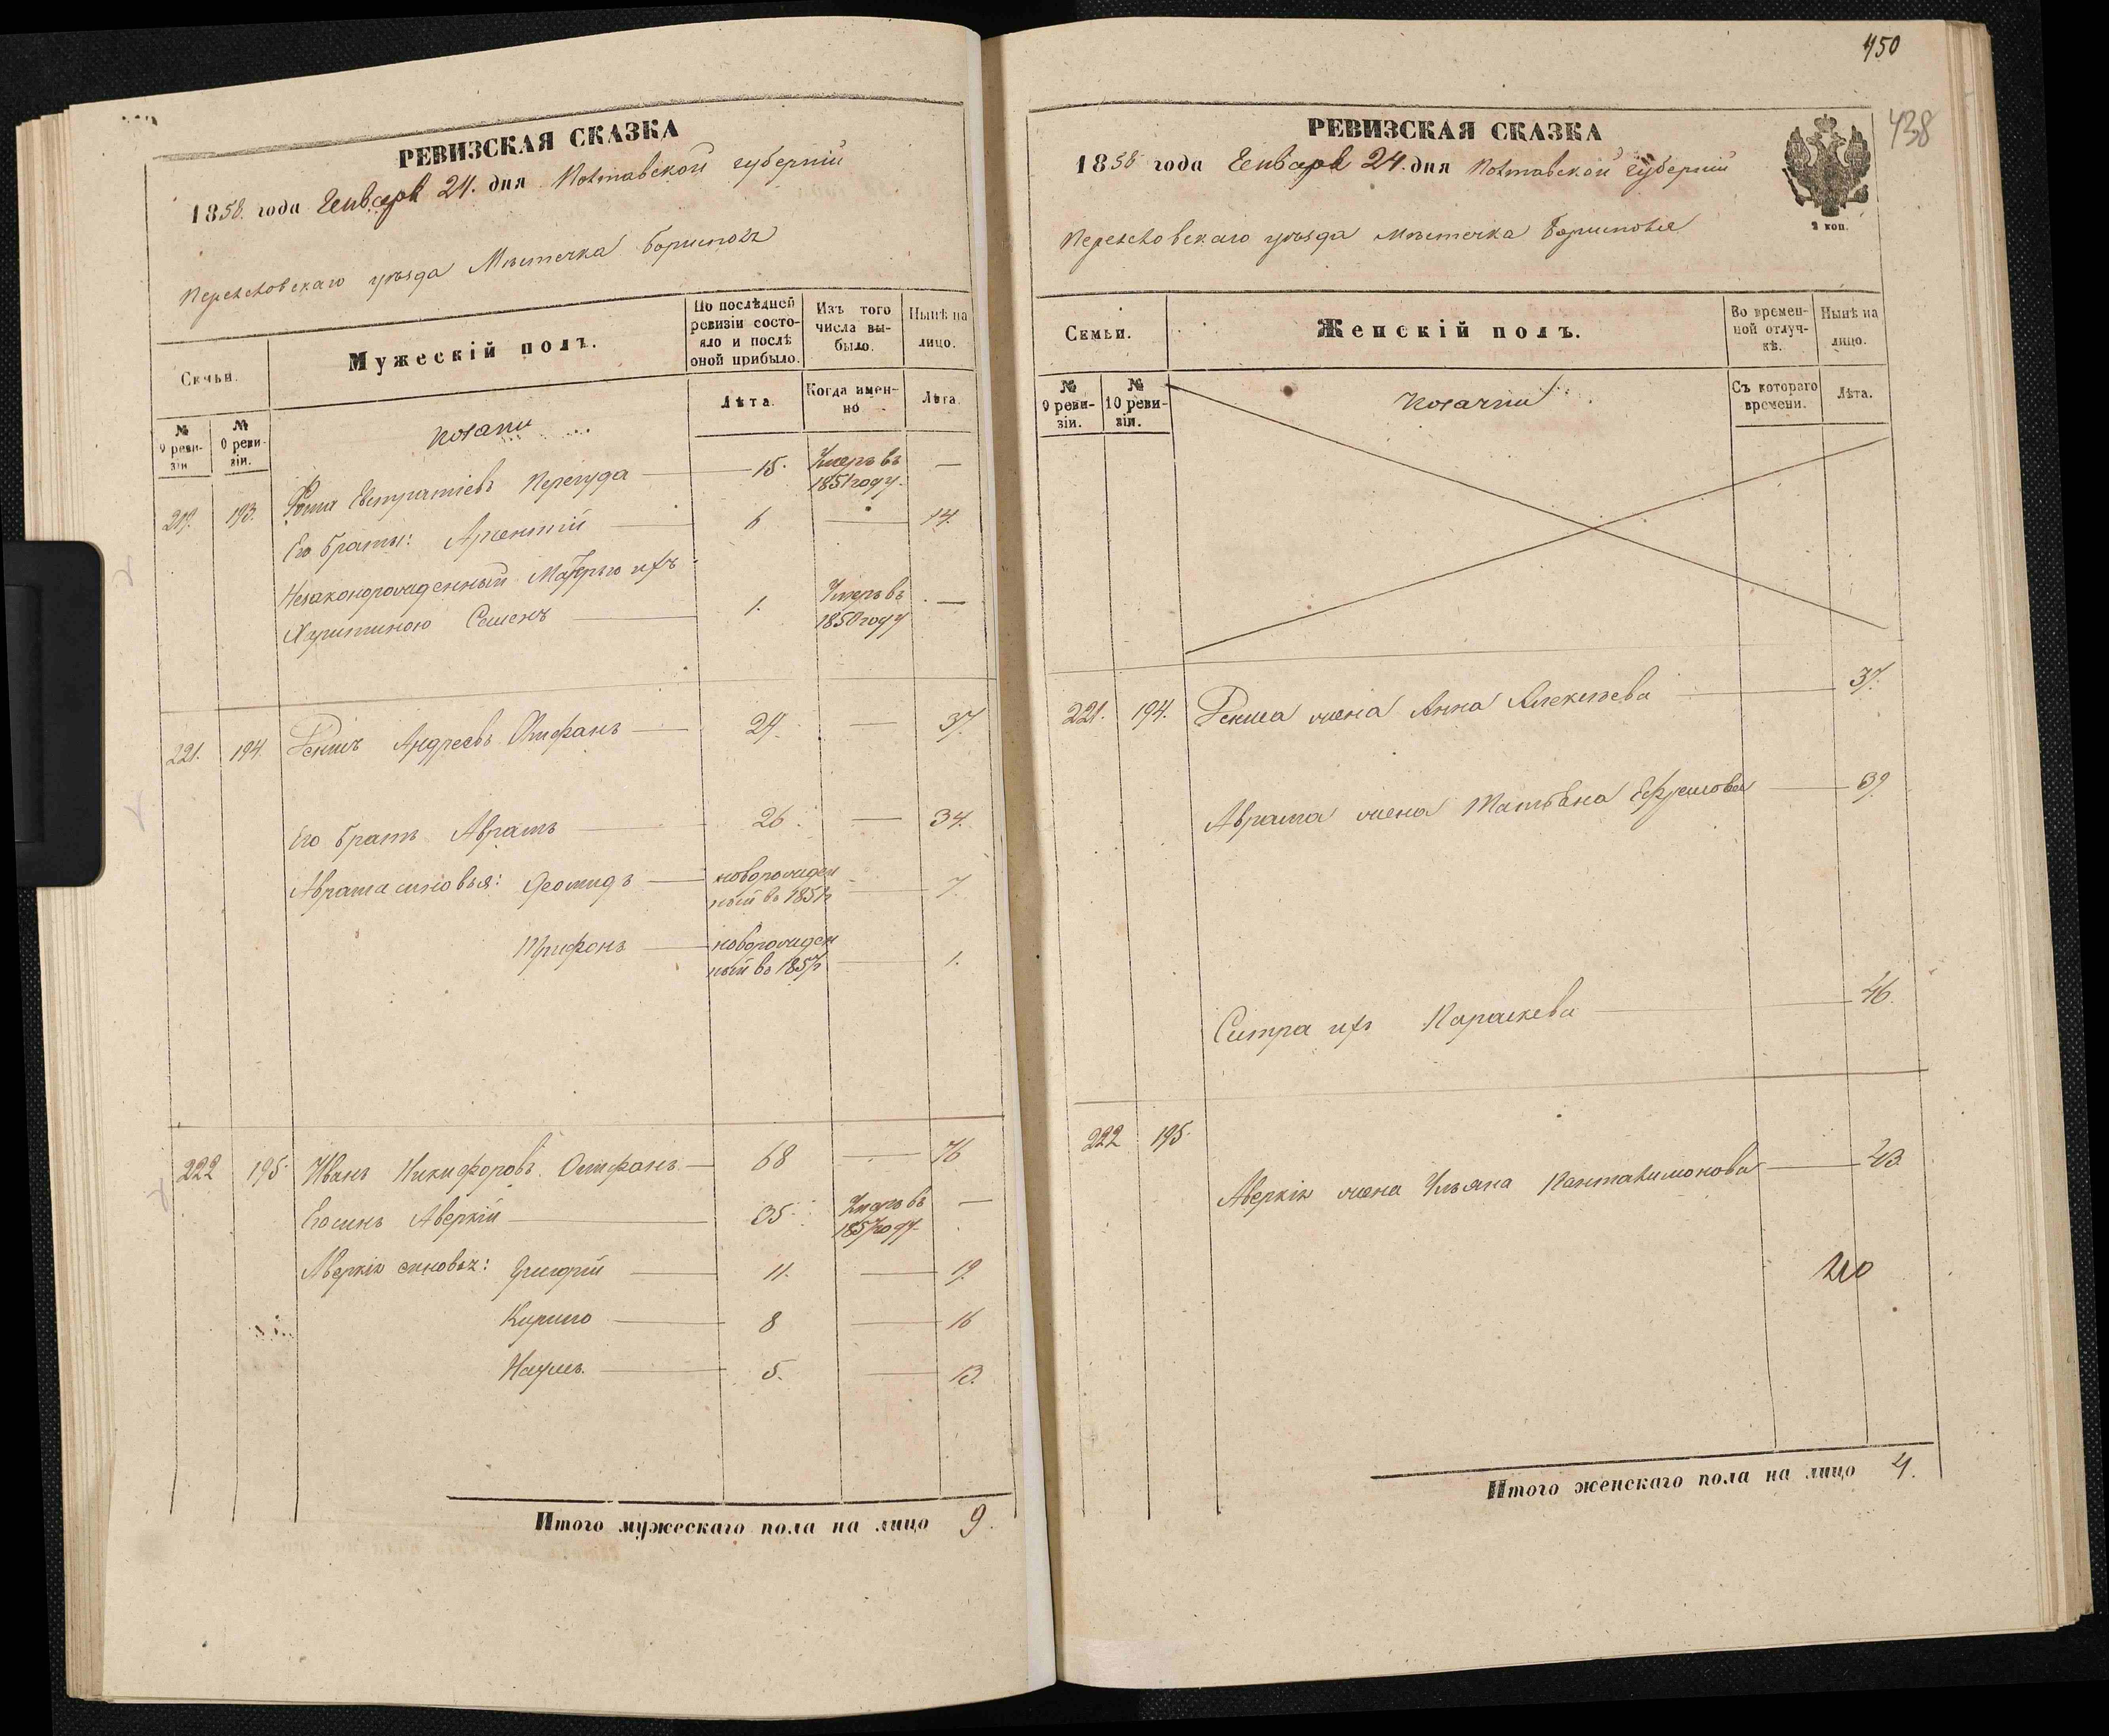 РЕВИЗСКАЯ СКАЗКА
1858 года Генваря 24. дня Полтавской губерніи
Переяславскаго уѣзда Мѣстечка Борисполя
Семьи.
Мужескій полъ.
По послѣдней ревизіи состояло и послѣ оной прибыло.
Изъ того числа выбыло.
Нынѣ на лицо.
№ 9 ревизіи
№ 10 ревизіи.
Козаки
Лѣта.
Когда именно
Лѣта.
193. Евстратіевъ Перегуда 15. Умеръ въ 1851 году. —
Его братья: Арсентій 6 — 14.
Незаконорожденный Матерью ихъ
Христиною Семенъ 1. Умеръ въ 1850 году —
221. 194. Андреевъ 29. — 37.
Его братъ Аврамъ 26. — 34.
Аврама сыновья: Деомидъ новорожденный въ 1851 г — 7.
Трифонъ новорожденный въ 1857 г — 1.
222 195. Иванъ Никифоровъ 68 — 76
Его сынъ Аверкій 35. Умеръ въ 1857 году —
Аверкія сыновья: Григорій 11. — 19.
Кирило 8 — 16
Наумъ. 5. — 13.
Итого мужескаго пола на лицо 9.
450
438
РЕВИЗСКАЯ СКАЗКА
1858 года Генваря 24. дня Полтавской губерніи
2 коп.
Переяславскаго уѣзда мѣстечка Борисполя
Семьи.
Женскій полъ.
Во временной отлучкѣ.
Нынѣ на лицо.
№ 9 ревизіи.
№ 10 ревизіи.
Козачки
Съ котораго времени.
Лѣта.
221. 194. жена Анна Алексѣева 37.
Аврама жена Татьяна Ефремова 39
Систра ихъ Параскева 46.
222 195. Аверкія жена Ульяна Пантелимонова 43.
Итого женскаго пола на лицо 4.